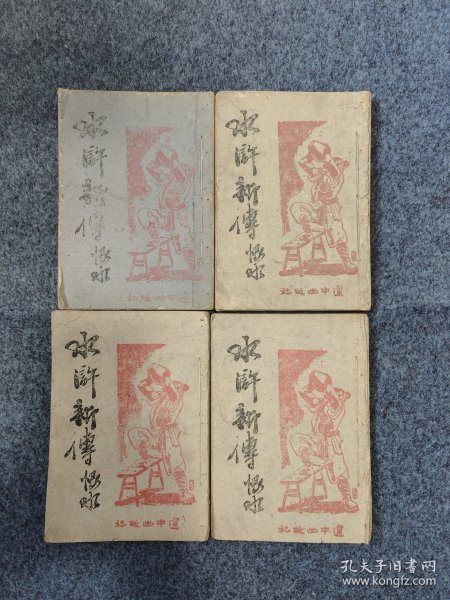 水滸新傳 恨水
建中出版社
水滸新傳 恨水
建中出版社
水滸新傳 恨水
建中出版社
水滸新傳 恨水
建中出版社
孔夫子旧书网
www.kongfz.com